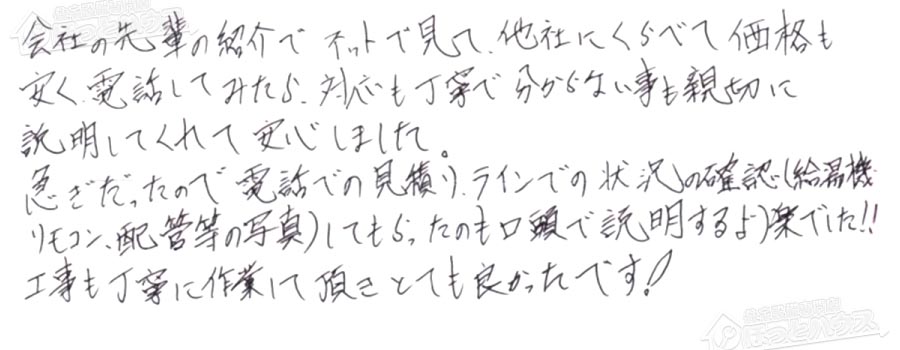 会社の先輩の紹介でネットで見て、他社にくらべて価格も
安く、電話してみたら、対応も丁寧で分からない事も親切に
説明してくれて安心しました。
急ぎだったので電話での見積り、ラインでの状況の確認(給湯機
リモコン、配管等の写真)してもらったのも口頭で説明するより楽でした!!
工事も丁寧に作業して頂きとても良かったです!
ほっとハウス